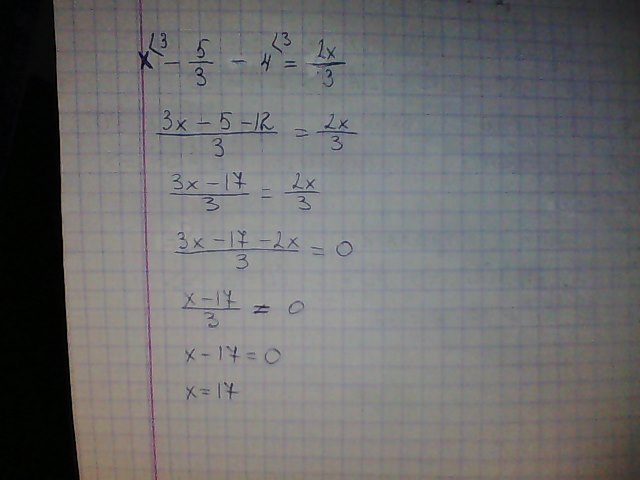 x⌞3 - 5/3 - 4⌞3 = 2x/3
(3x - 5 - 12)/3 = 2x/3
(3x - 17)/3 = 2x/3
(3x - 17 - 2x)/3 = 0
(x - 17)/3 = 0
x - 17 = 0
x = 17